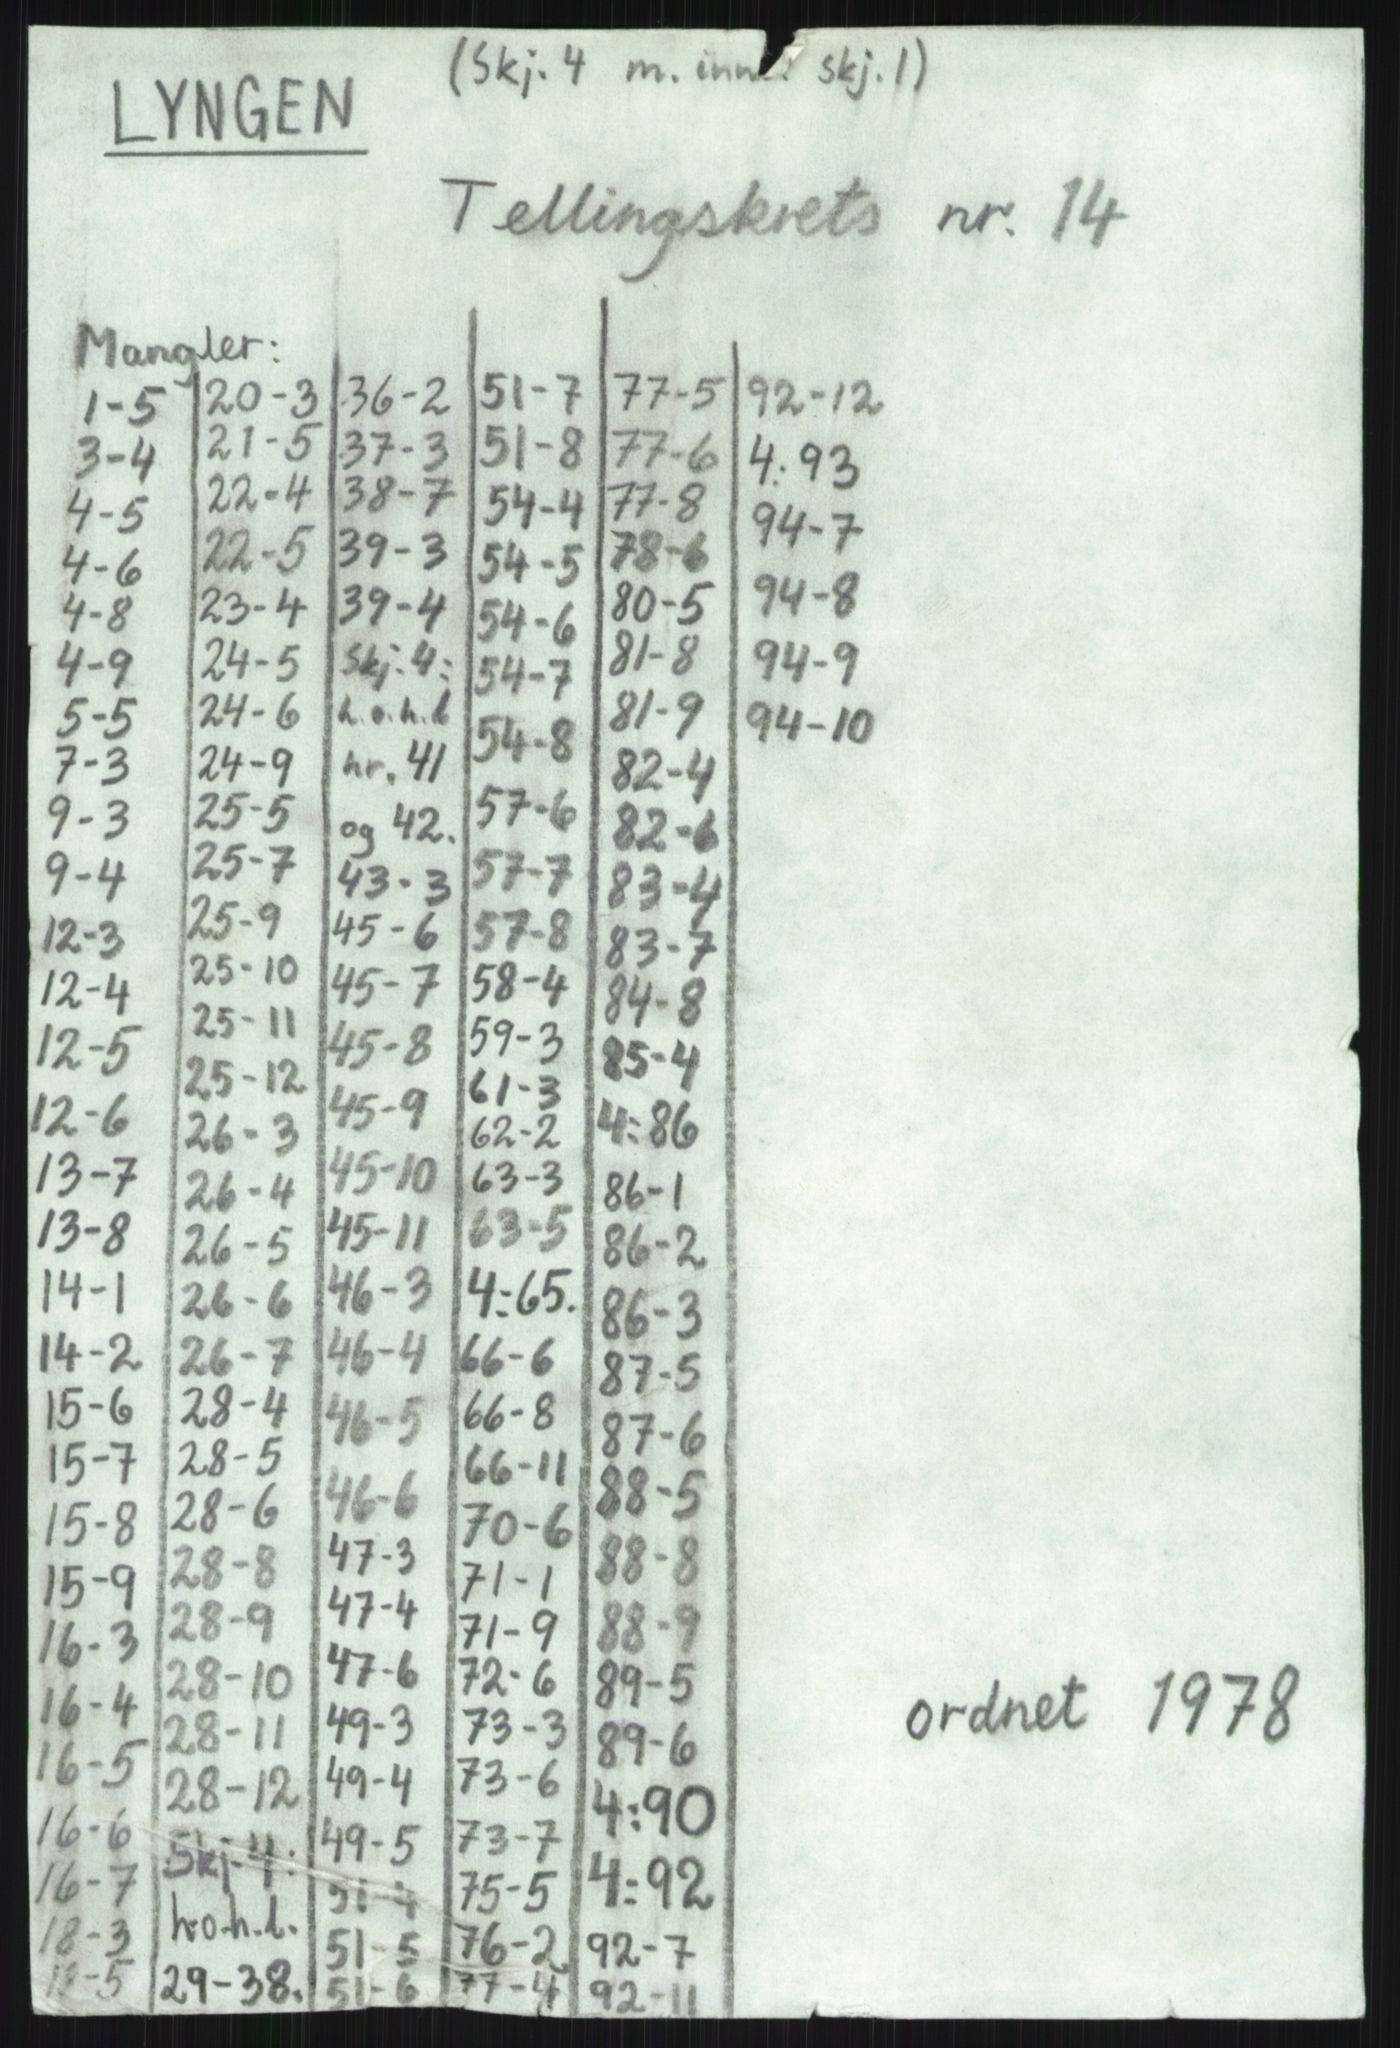 (Skj. 4 m. skj. 1)
LYNGEN
Tellingskrets nr. 14
Mangler:
1-5
3-4
4-5
4-6
4-8
4-9
5-5
7-3
9-3
9-4
12-3
12-4
12-5
12-6
13-7
13-8
14-1
14-2
15-6
15-7
15-8
15-9
16-3
16-4
16-5
16-6
16-7
18-3
20-3
21-5
22-4
22-5
23-4
24-5
24-6
24-9
25-5
25-7
25-9
25-10
25-11
25-12
26-3
26-4
26-5
26-6
26-7
28-4
28-5
28-6
28-8
28-9
28-10
28-11
28-12
Skj. 4:
h.o.h.l.
29-38.
36-2
37-3
38-7
39-3
39-4
Skj. 4:
h.o.h.l
nr. 41
og 42.
43-3
45-6
45-7
45-8
45-9
45-10
45-11
46-3
46-4
46-5
46-6
47-3
47-4
47-6
49-3
49-4
49-5
51-4
51-5
51-6
51-7
51-8
54-4
54-5
54-6
54-7
54-8
57-6
57-7
57-8
58-4
59-3
61-3
62-2
63-3
63-5
4:65.
66-6
66-8
66-11
70-6
71-1
71-9
72-6
73-3
73-6
73-7
75-5
76-2
77-4
77-5
77-6
77-8
78-6
80-5
81-8
81-9
82-4
82-6
83-4
83-7
84-8
85-4
4:86
86-1
86-2
86-3
87-5
87-6
88-5
88-8
88-9
89-5
89-6
4:90
4:92
92-7
92-11
92-12
4:93
94-7
94-8
94-9
94-10
ordnet 1978